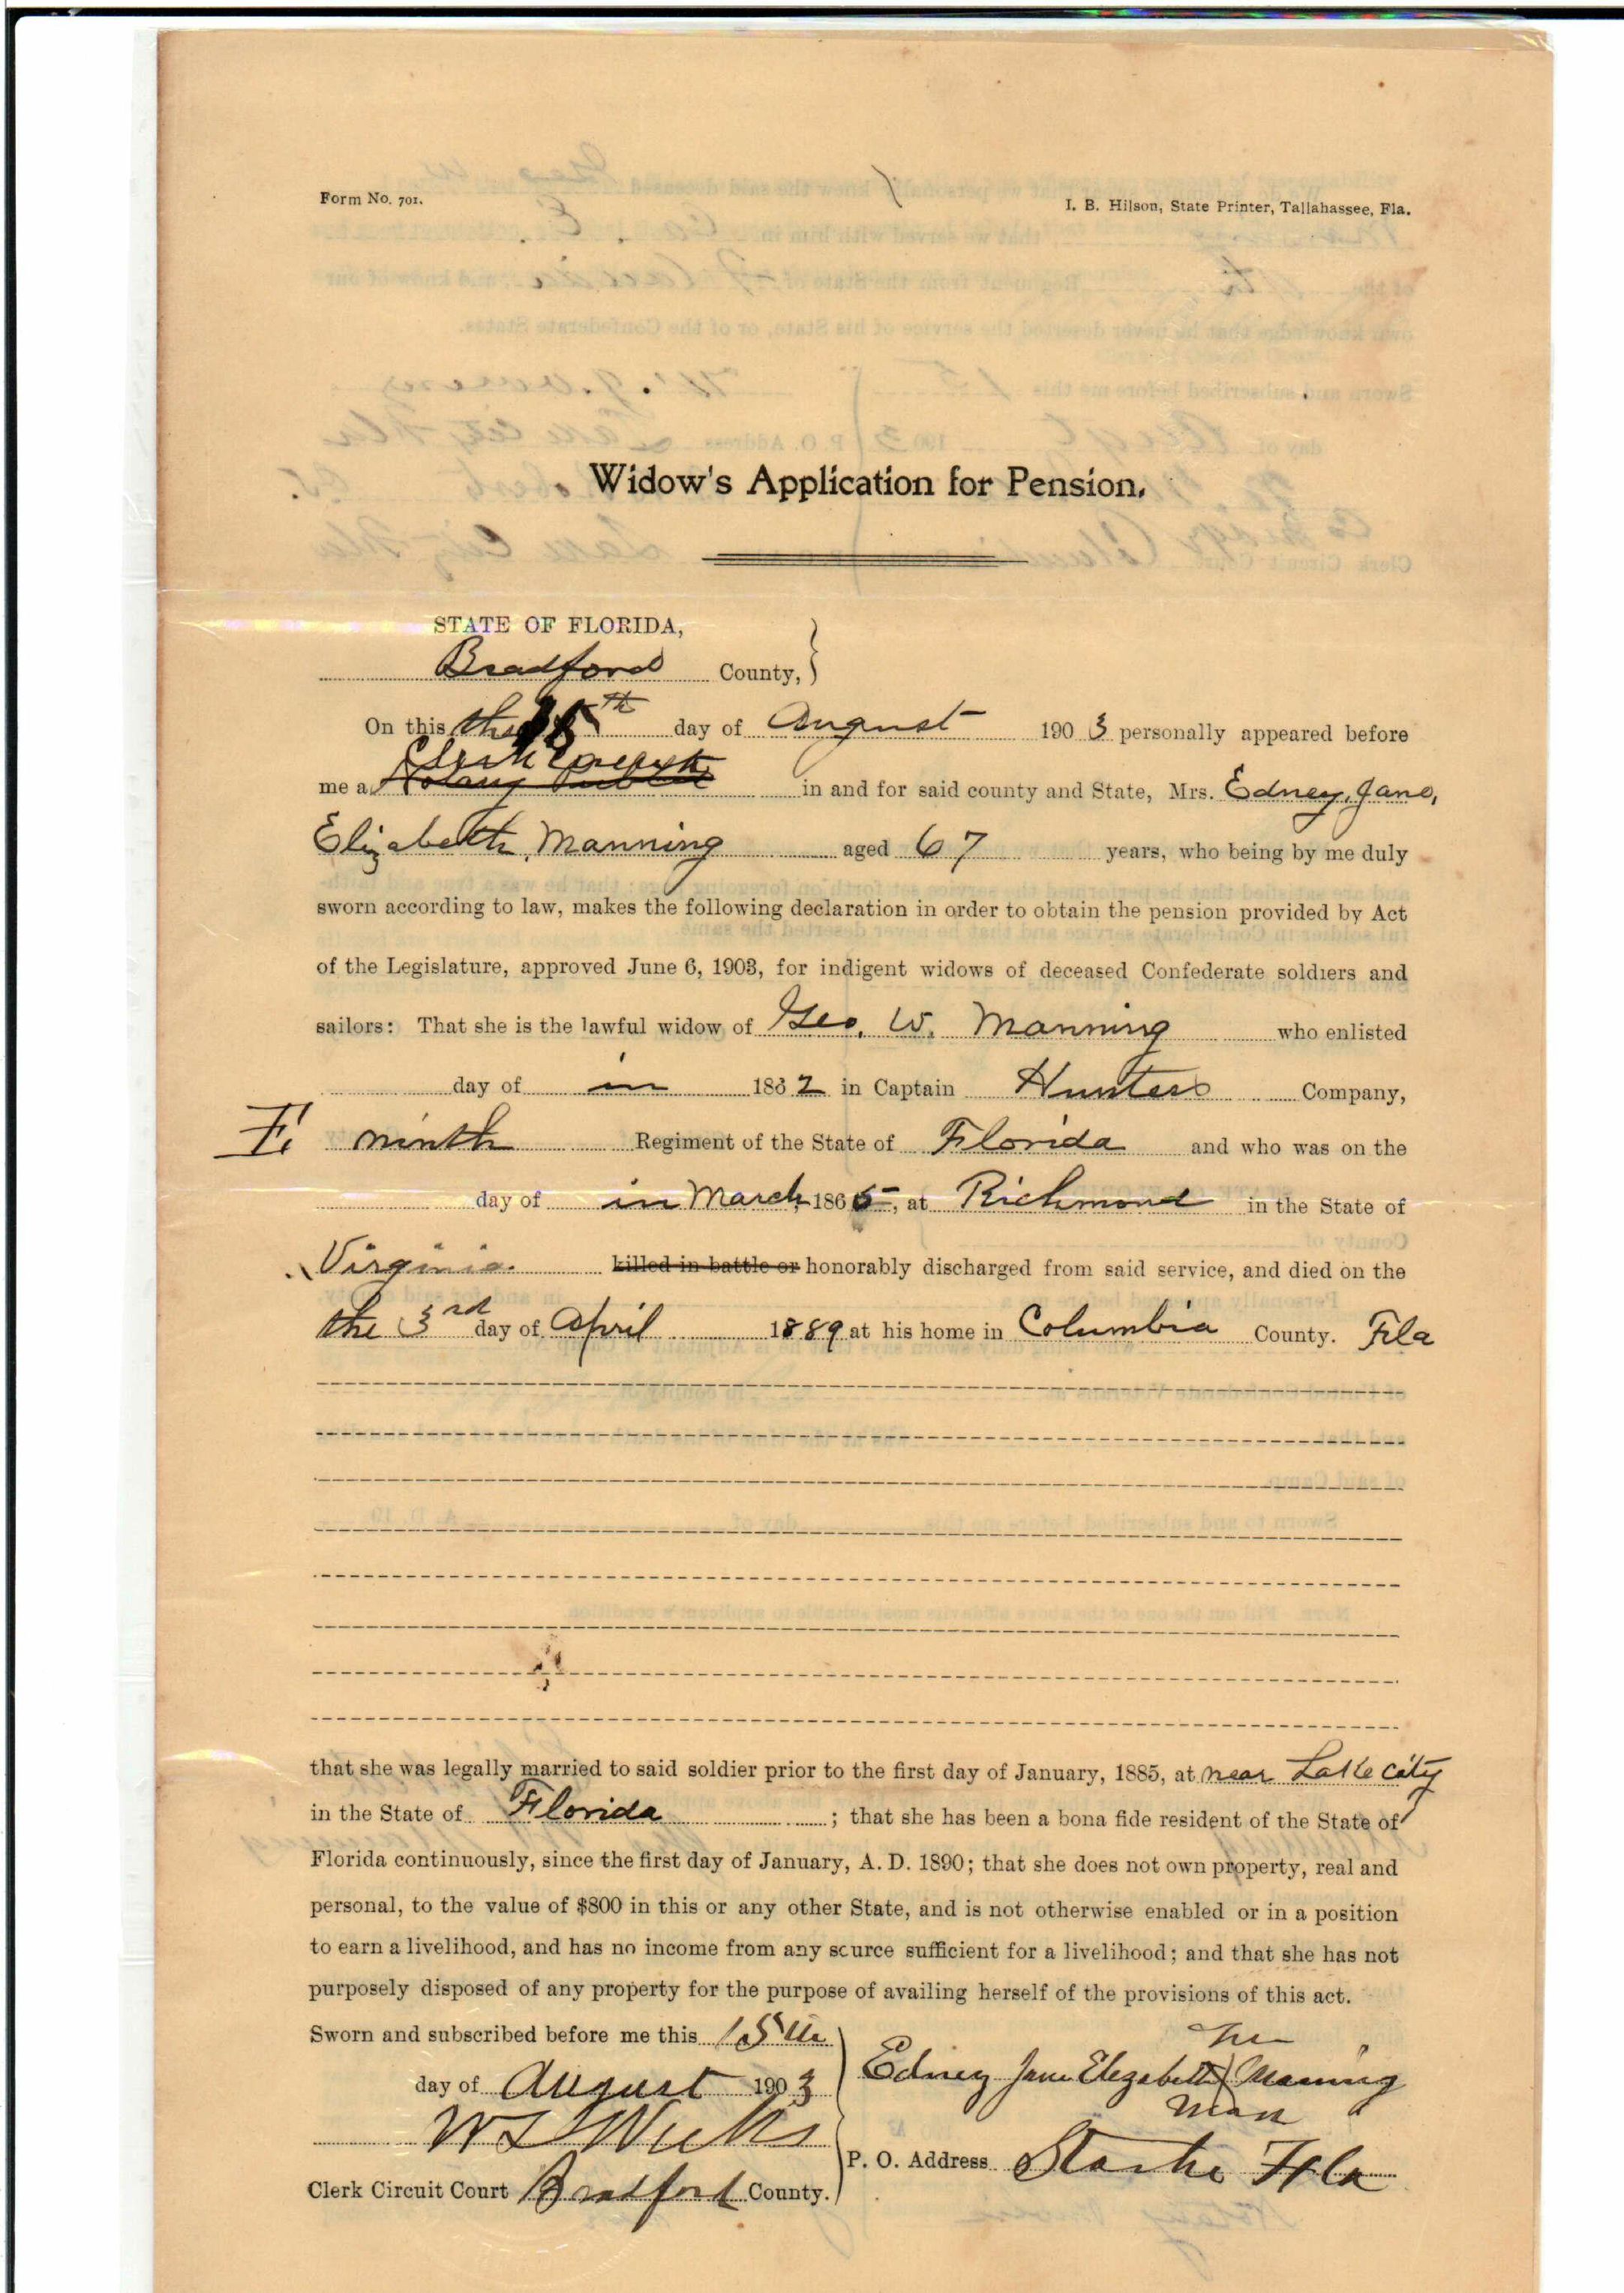 Form No. 701.
I. B. Hilson, State Printer, Tallahassee, Fla.
Widow's Application for Pension.
STATE OF FLORIDA,
Bradford County,
On this the 15th day of August 1903 personally appeared before
Clerk
me a Notary Public in and for said county and State, Mrs. Edney, Jane,
Elizabeth, Manning aged 67 years, who being by me duly
sworn according to law, makes the following declaration in order to obtain the pension provided by Act
of the Legislature, approved June 6, 1903, for indigent widows of deceased Confederate soldiers and
sailors: That she is the lawful widow of Geo. W. Manning who enlisted
day of in 1862 in Captain Hunters Company,
E, ninth Regiment of the State of Florida and who was on the
day of in March, 1865, at Richmond in the State of
Virginia. killed in battle or honorably discharged from said service, and died on the
the 3rd day of April 1889 at his home in Columbia County. Fla
that she was legally married to said soldier prior to the first day of January, 1885, at near Lake City
in the State of Florida ; that she has been a bona fide resident of the State of
Florida continuously, since the first day of January, A. D. 1890; that she does not own property, real and
personal, to the value of $800 in this or any other State, and is not otherwise enabled or in a position
to earn a livelihood, and has no income from any source sufficient for a livelihood; and that she has not
purposely disposed of any property for the purpose of availing herself of the provisions of this act.
Sworn and subscribed before me this 15th
day of August 1903
her
Edney Jane Elezabeth ) Manning
mark
P. O. Address Starke Fla
Clerk Circuit Court Bradford County.